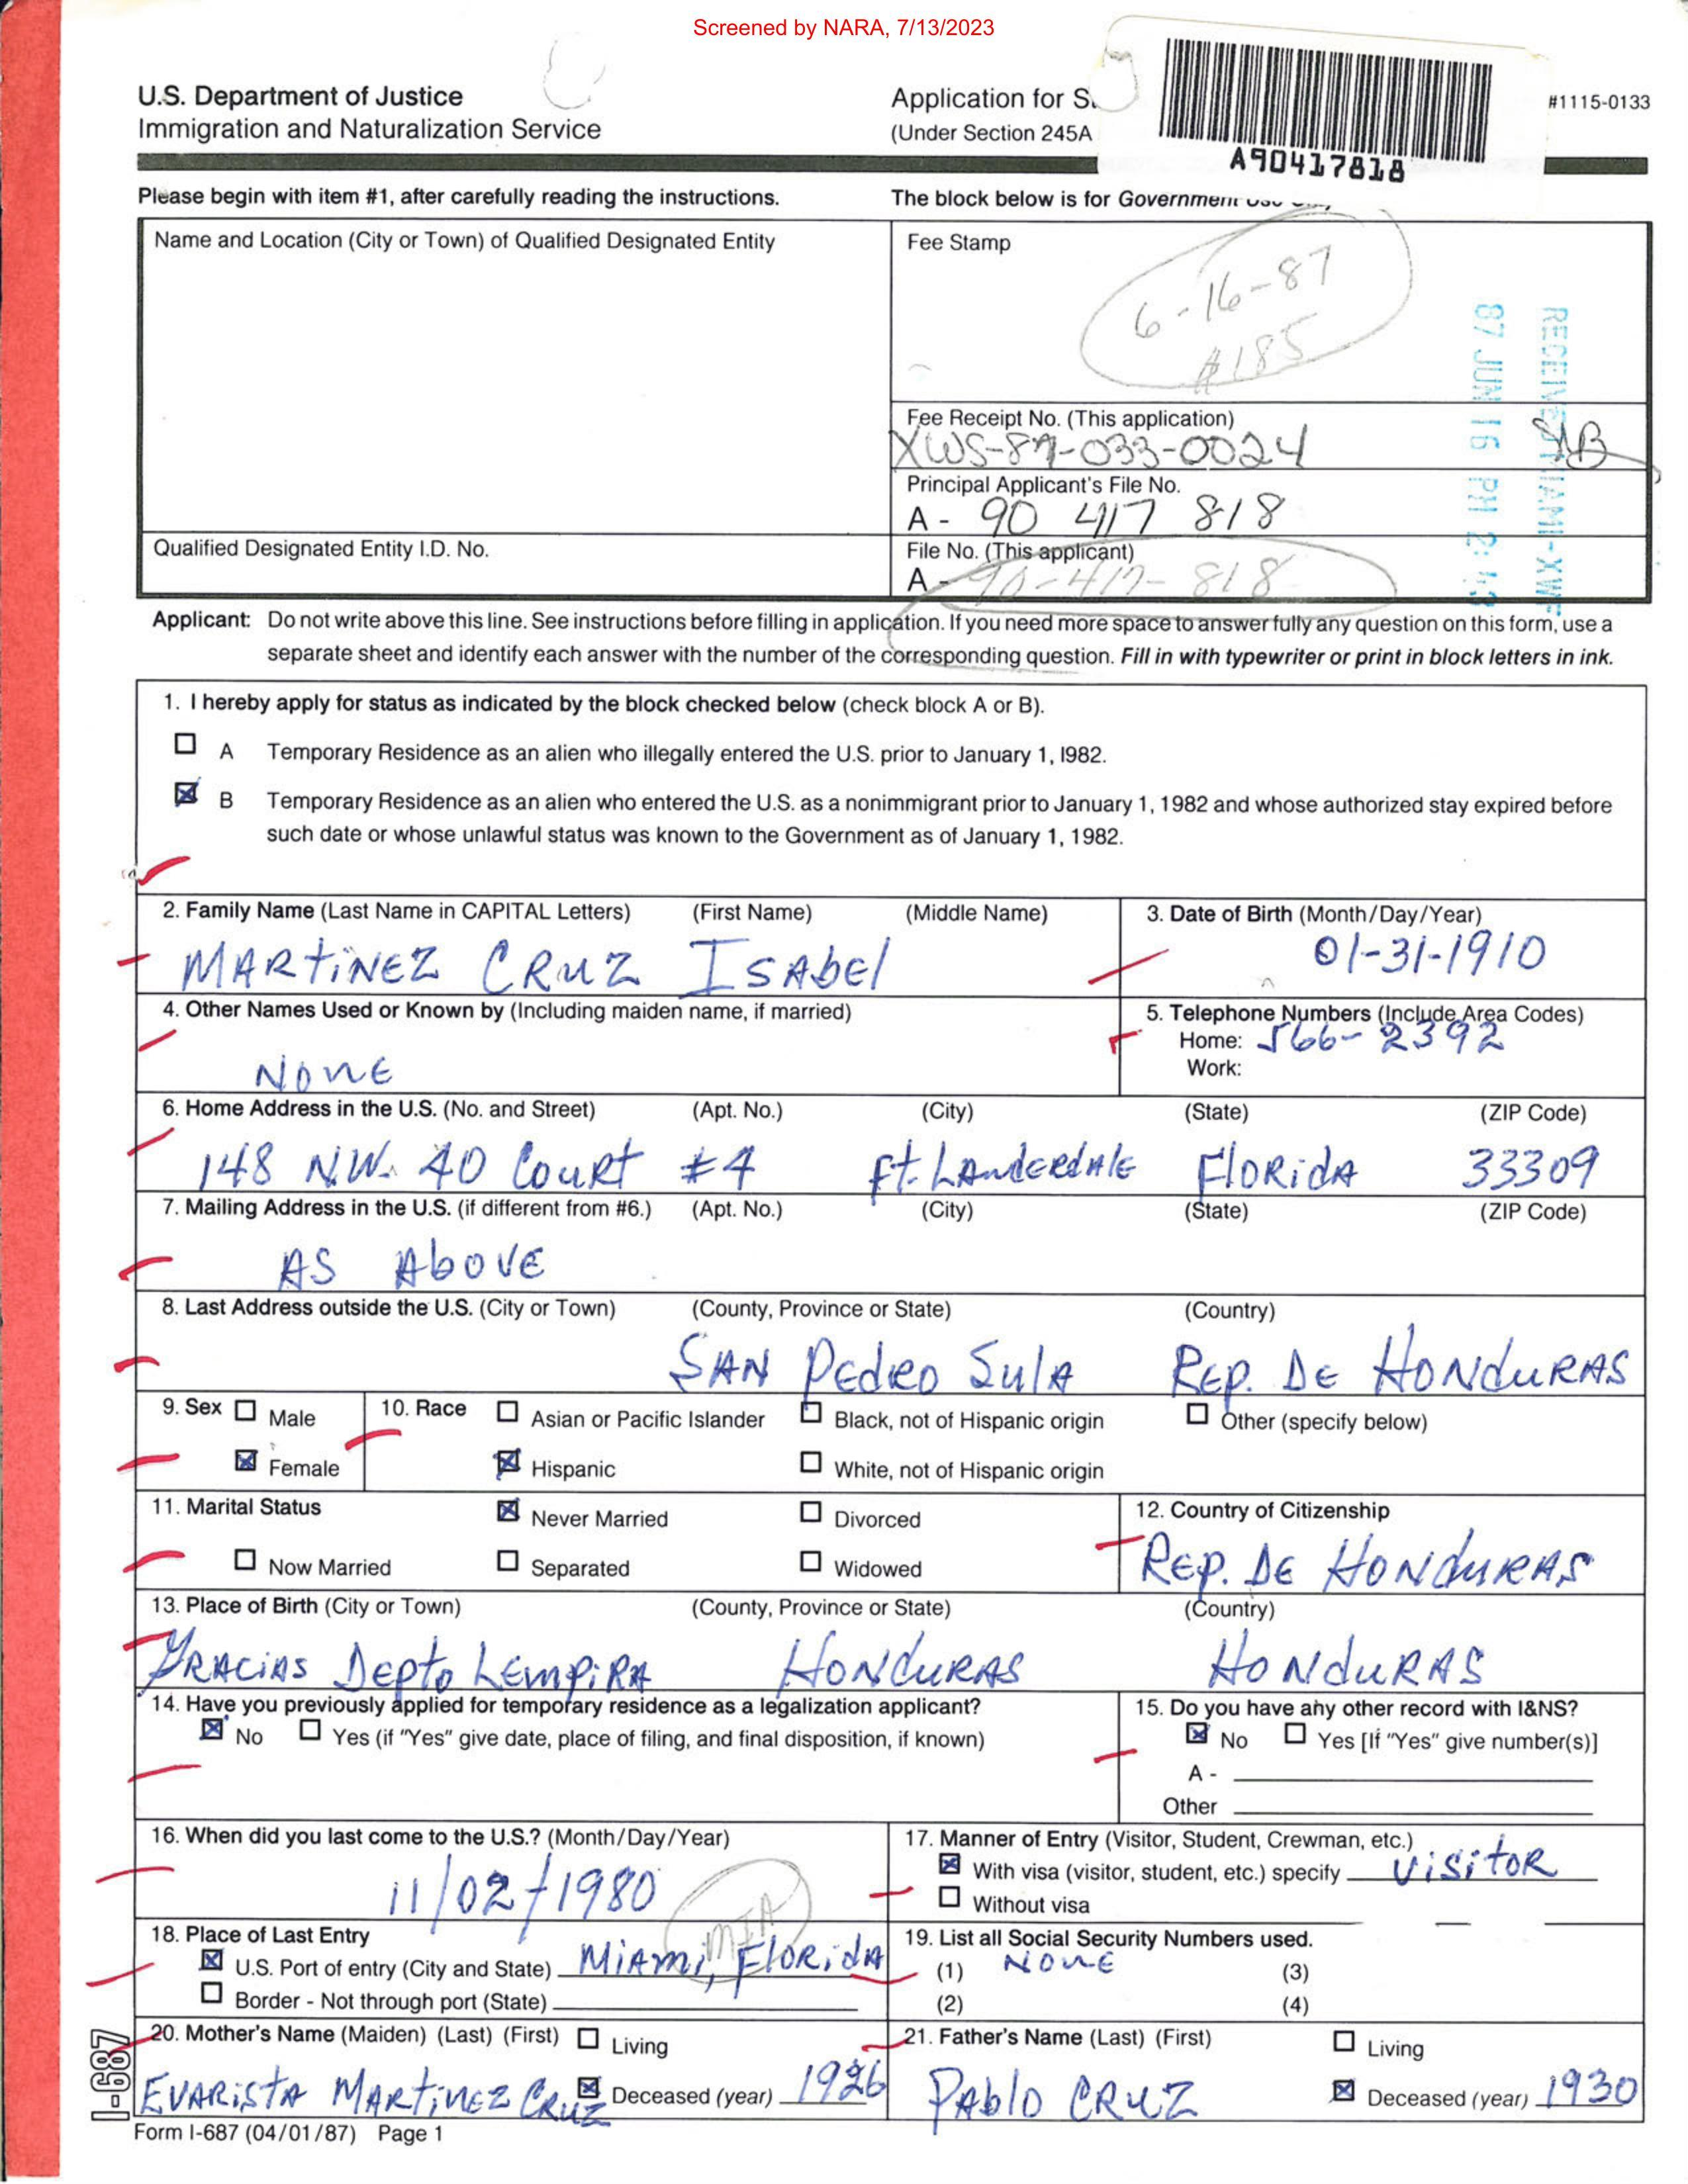 Screened by NARA, 7/13/2023
U.S. Department of Justice
Immigration and Naturalization Service
Application for
(Under Section 245A
#1115-0133
A90417818
Please begin with item #1, after carefully reading the instructions.
The block below is for Government Use
Name and Location (City or Town) of Qualified Designated Entity
Fee Stamp
6-16-87
RECEIVED MIAMI-XW
87 JUN 16 PM 2:
Fee Receipt No. (This application)
XWS-87-033-0024
Principal Applicant's File No.
A - 90 417 818
Qualified Designated Entity I.D. No.
File No. (This applicant)
A - 90-417-818
Applicant: Do not write above this line. See instructions before filling in application. If you need more space to answer fully any question on this form, use a
separate sheet and identify each answer with the number of the corresponding question. Fill in with typewriter or print in block letters in ink.
1. I hereby apply for status as indicated by the block checked below (check block A or B).
A Temporary Residence as an alien who illegally entered the U.S. prior to January 1, l982.
B Temporary Residence as an alien who entered the U.S. as a nonimmigrant prior to January 1, 1982 and whose authorized stay expired before
such date or whose unlawful status was known to the Government as of January 1, 1982.
2. Family Name (Last Name in CAPITAL Letters) (First Name) (Middle Name)
MARTINEZ CRUZ ISAbEl
3. Date of Birth (Month/Day/Year)
01-31-1910
4. Other Names Used or Known by (Including maiden name, if married)
NONE
5. Telephone Numbers (Include Area Codes)
Home: 566-2392
Work:
6. Home Address in the U.S. (No. and Street) (Apt. No.) (City) (State) (ZIP Code)
148 N.W. 40 Court #4 Ft. LAuderdAlE FloRidA 33309
7. Mailing Address in the U.S. (if different from #6.) (Apt. No.) (City) (State) (ZIP Code)
AS AboVE
8. Last Address outside the U.S. (City or Town) (County, Province or State) (Country)
SAN PEdRO SulA REP. DE HONduRAS
9. Sex Male
Female
10. Race Asian or Pacific Islander Black, not of Hispanic origin Other (specify below)
Hispanic White, not of Hispanic origin
11. Marital Status Never Married Divorced
Now Married Separated Widowed
12. Country of Citizenship
REP. DE HONduRAS
13. Place of Birth (City or Town) (County, Province or State) (Country)
GRACiAS Depto LEMPiRA HONduRAS HONduRAS
14. Have you previously applied for temporary residence as a legalization applicant?
No Yes (if "Yes" give date, place of filing, and final disposition, if known)
15. Do you have any other record with I&NS?
No Yes [If "Yes" give number(s)]
A -
Other
16. When did you last come to the U.S.? (Month/Day/Year)
11/02/1980
17. Manner of Entry (Visitor, Student, Crewman, etc.)
With visa (visitor, student, etc.) specify ViSitoR
Without visa
MIA
18. Place of Last Entry
U.S. Port of entry (City and State) MiAmi, FloRidA
Border - Not through port (State)
19. List all Social Security Numbers used.
(1) NONE (3)
(2) (4)
20. Mother's Name (Maiden) (Last) (First) Living
EVARiStA MARTiNEZ CRuZ Deceased (year) 1926
21. Father's Name (Last) (First) Living
PAblo CRUZ Deceased (year) 1930
I-687
Form I-687 (04/01/87) Page 1